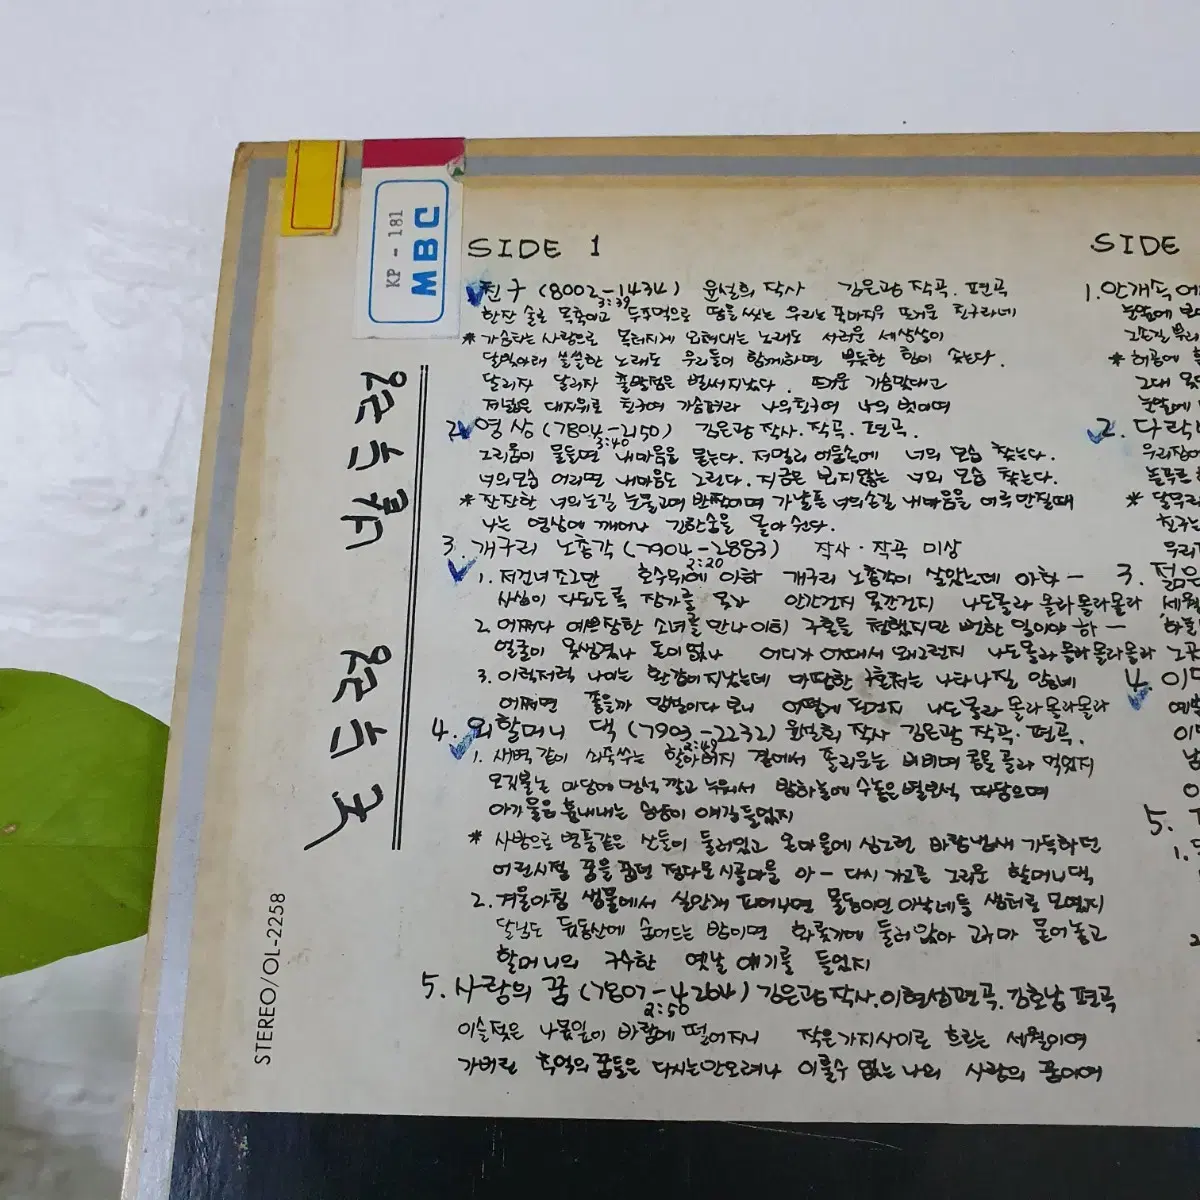 KP-181
MBC
논두렁
밭두렁
STEREO/OL-2258
SIDE 1
친구 (8002-1434) 윤설희 작사 김은광 작곡. 편곡
3:39
한잔 술로 목축이고 두주먹으로 땀을 씻는 우리는
달빛아래 쓸쓸한 노래도 우리들이 함께하면 뿌듯한 힘이 솟는다.
달리자 달리자 출발점은 벌써지났다. 뜨거운 가슴맞대고
저넓은 대지위로 친구여 가슴펴라 나의친구여 나의 벗이여
2. 영상 (7804-2150) 김은광 작사.작곡.편곡.
3:40
그리움이 물들면 내마음을 묻는다. 저멀리 어둠속에 너의 모습 찾는다.
너의모습 어리면 내마음도 그린다. 지금은 보지않는 너의 모습 찾는다.
* 잔잔한 너의눈길 눈물고여 반짝이며 가냘픈 너의손길 내마음을 어루만질때
나는 영상에 깨어나 긴한숨을 몰아쉰다.
3. 개구리 노총각 (7904-2883) 작사·작곡 미상
2:20
1. 저건너 조그만 호수위에 아하 개구리 노총각이 살았는데 아하 —
사십이 다되도록 장가를 못가 안간건지 못간건지 나도몰라 몰라몰라몰라
2. 어쩌다 예쁘장한 소녀를 만나 이히 구혼을 청했지만 뻔한 일이야 하 —
얼굴이 못생겼나 돈이없나 어디가 어때서 왜그런지 나도몰라 몰라몰라몰라
3. 이럭저럭 나이는 환갑이지났는데 마땅한 구혼처는 나타나질 않네
어쩌면 좋을까 맘뿐이다 보니 어떻게 된건지 나도몰라 몰라몰라몰라
4. 외할머니 댁 (7903-2232) 윤설희 작사 김은광 작곡·편곡.
2:49
1. 새벽같이 쇠죽쑤는 할아버지 곁에서 졸리운눈 비비며 콩을 골라 먹었지
모깃불논 마당에 멍석 깔고 누워서 밤하늘에 수놓은 별보석 따담으며
아가울음 흉내내는 얘길들었지
* 사방으로 병풍같은 산들이 둘러있고 온마을에 싱그런 바람냄새 가득하던
어린시절 꿈을 꾸던 정다운 시골마을 아 — 다시 가고픈 그리운 할머니댁
2. 겨울아침 샘물에서 실안개 피어나면 물동이인 아낙네들 샘터로 모였지
달님도 뒷동산에 숨어드는 밤이면 화롯가에 둘러앉아 고구마 묻어놓고
할머니의 구수한 옛날 얘기를 들었지
5. 사랑의 꿈 (7807-4264) 김은광작사.이현섭편곡.김호남 편곡
2:50
이슬젖은 나뭇잎이 바람에 떨어지니 작은가지사이로 흐르는 세월이여
가버린 추억의꿈들은 다시는안오려나 이룰수 없는 나의 사랑의 꿈이여
SIDE
1. 안개속에
* 허공에
그대
2. 다락
* 달무리
3. 젊은
4.
5.